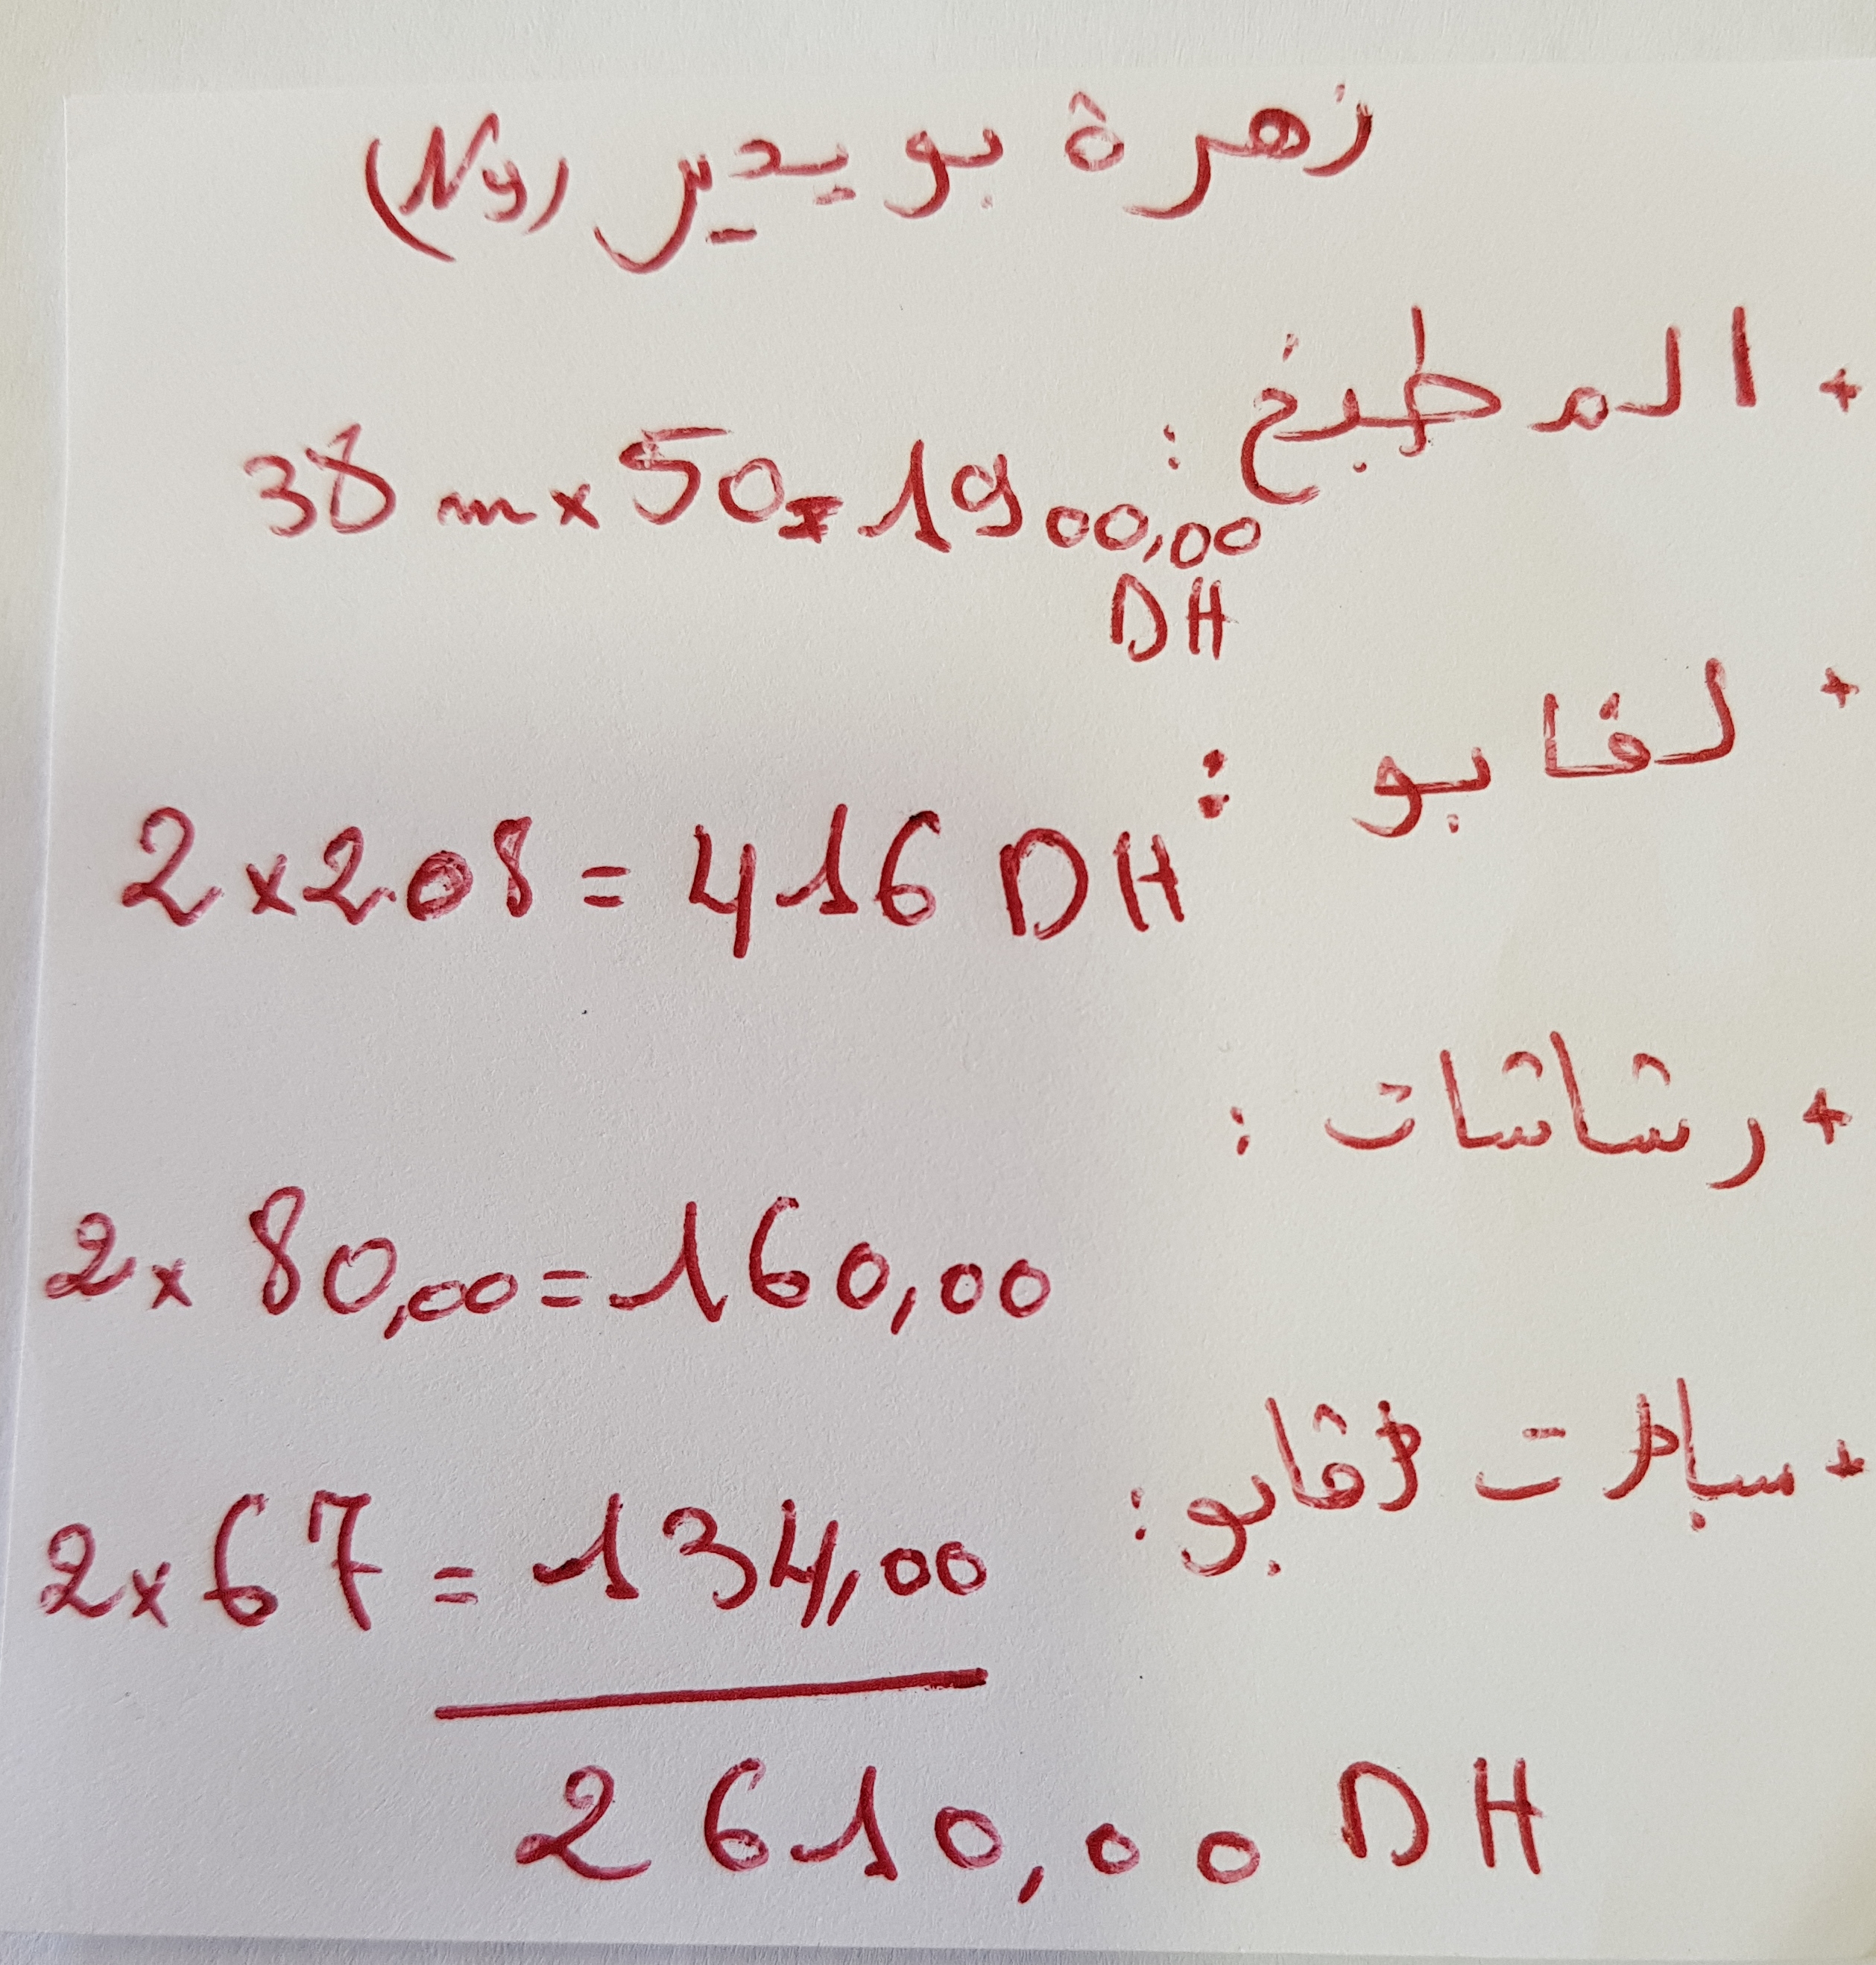 زهرة بويدير (Ny)
+ المطبخ :
38 m x 50 = 1900,00
DH
+ لفابو :
2 x 208 = 416 DH
+ رشاشات :
2 x 80,00 = 160,00
+ سبلات لفابو :
2 x 67 = 134,00
2610,00 DH